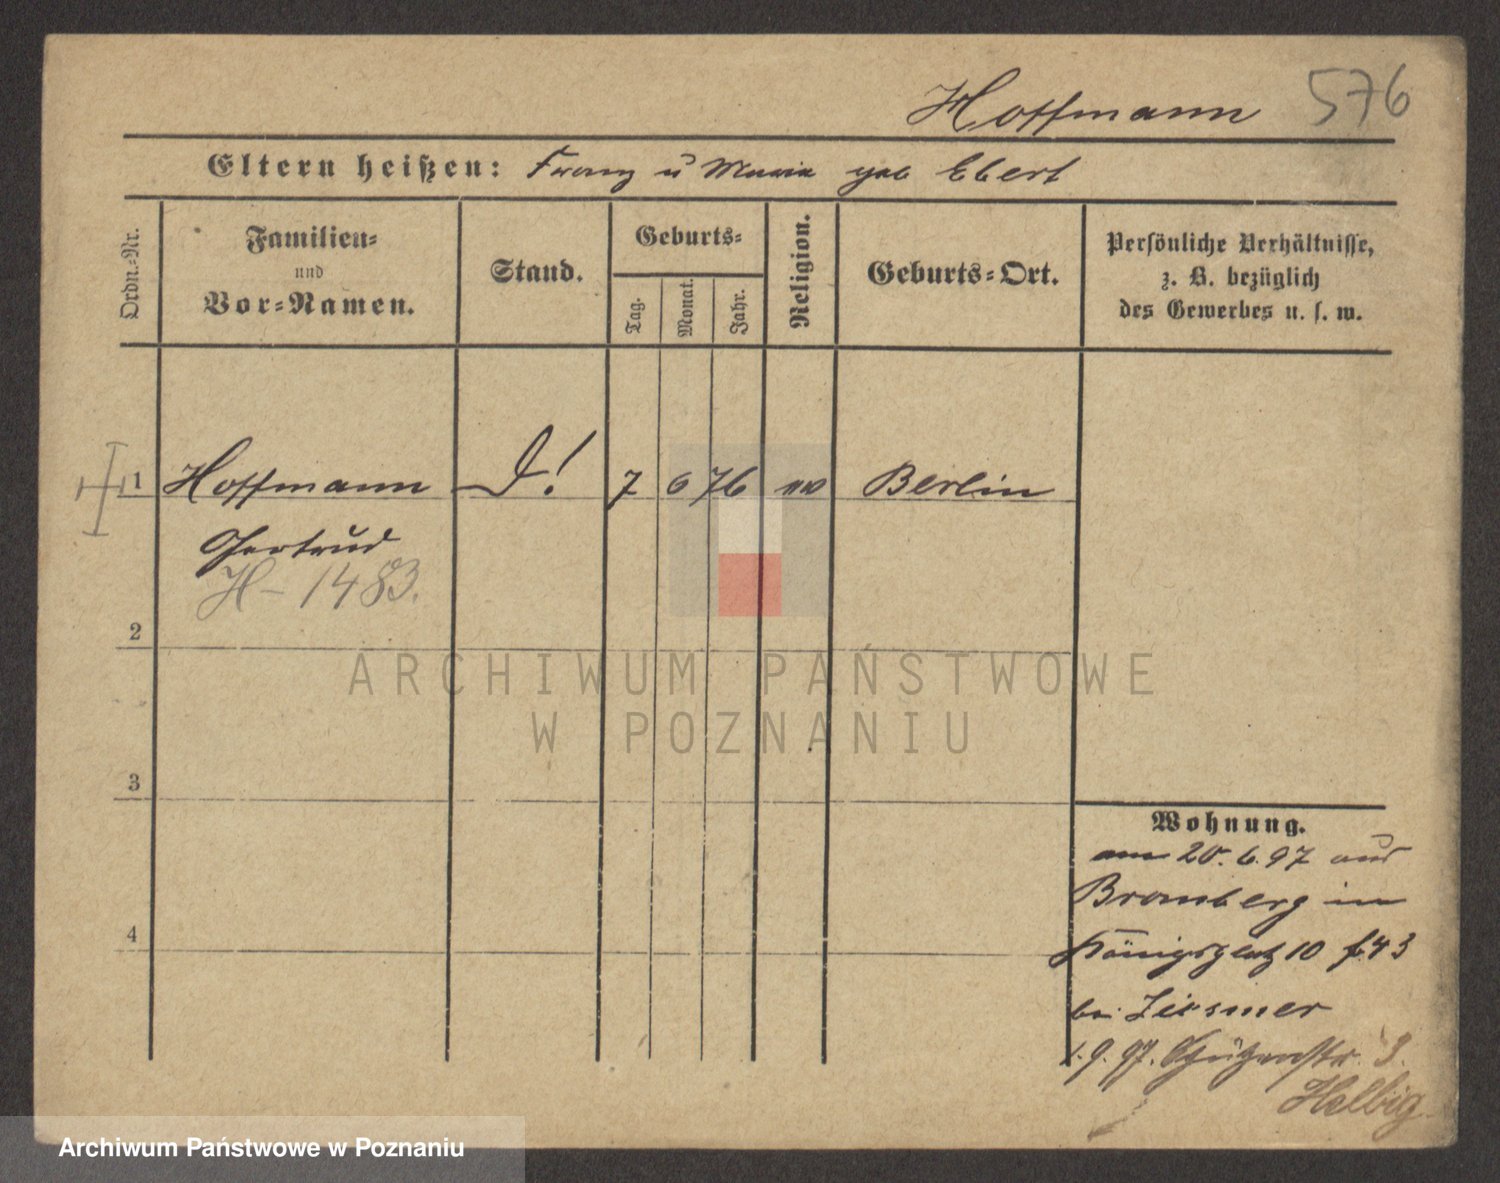 Hoffmann 576
Eltern heißen: Franz u Maria geb Ebert
Ordn.-Nr.
Familien- und Vor-Namen.
Stand.
Geburts-
Tag.
Monat.
Jahr.
Religion.
Geburts-Ort.
Persönliche Verhältnisse,
z. B. bezüglich
des Gewerbes u. s. w.
1 Hoffmann D! 7 6 76 Berlin
Gertrud
H-1483.
2
ARCHIWUM PAŃSTWOWE
W POZNANIU
3
4
Wohnung.
am 20.6.97 aus
Bromberg in
Königsplatz 10 f. 43
bei Ziesmer
1.9.97. Schützenstr. 3.
Helbig
Archiwum Państwowe w Poznaniu